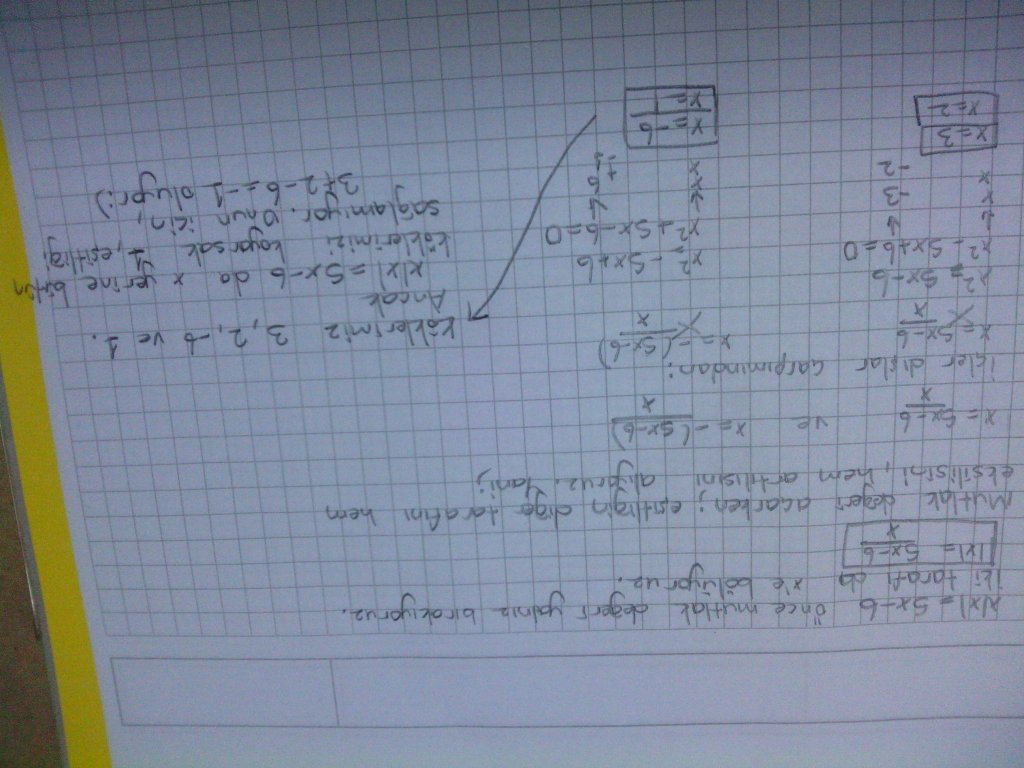 x|x| = 5x-6 Önce mutlak değeri yalnız bırakıyoruz.
İki tarafı da x'e bölüyoruz.
|x| = 5x-6/x
Mutlak değeri açarken; eşitliğin diğer tarafını hem
eksilisini, hem artılısını alıyoruz. Yani;
x = 5x-6/x ve x = -(5x-6)/x
İçler dışlar çarpımından:
x = 5x-6/x
x² = 5x-6
x² - 5x+6 = 0
↓ ↓
x -3
x -2
x=3
x=2
x = -(5x-6)/x
x² = -5x+6
x² + 5x-6=0
↓ ↓
x 6
x -1
x=-6
x=1
Köklerimiz 3, 2, -6 ve 1.
Ancak
x|x| = 5x-6 da x yerine bütün
köklerimizi koyarsak eşitliği
sağlamıyor. Onun için,
3+2-6=-1 oluyor:)